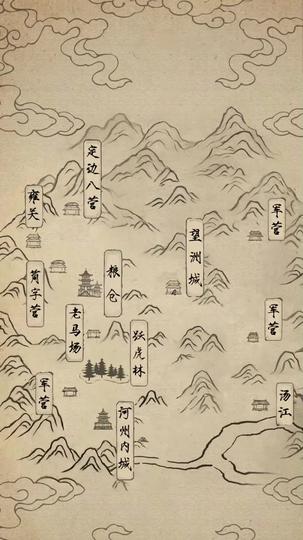 定边八营
雍关
军营
望洲城
茴字营
粮仓
老马场
军营
跃虎林
军营
汤江
河州内城